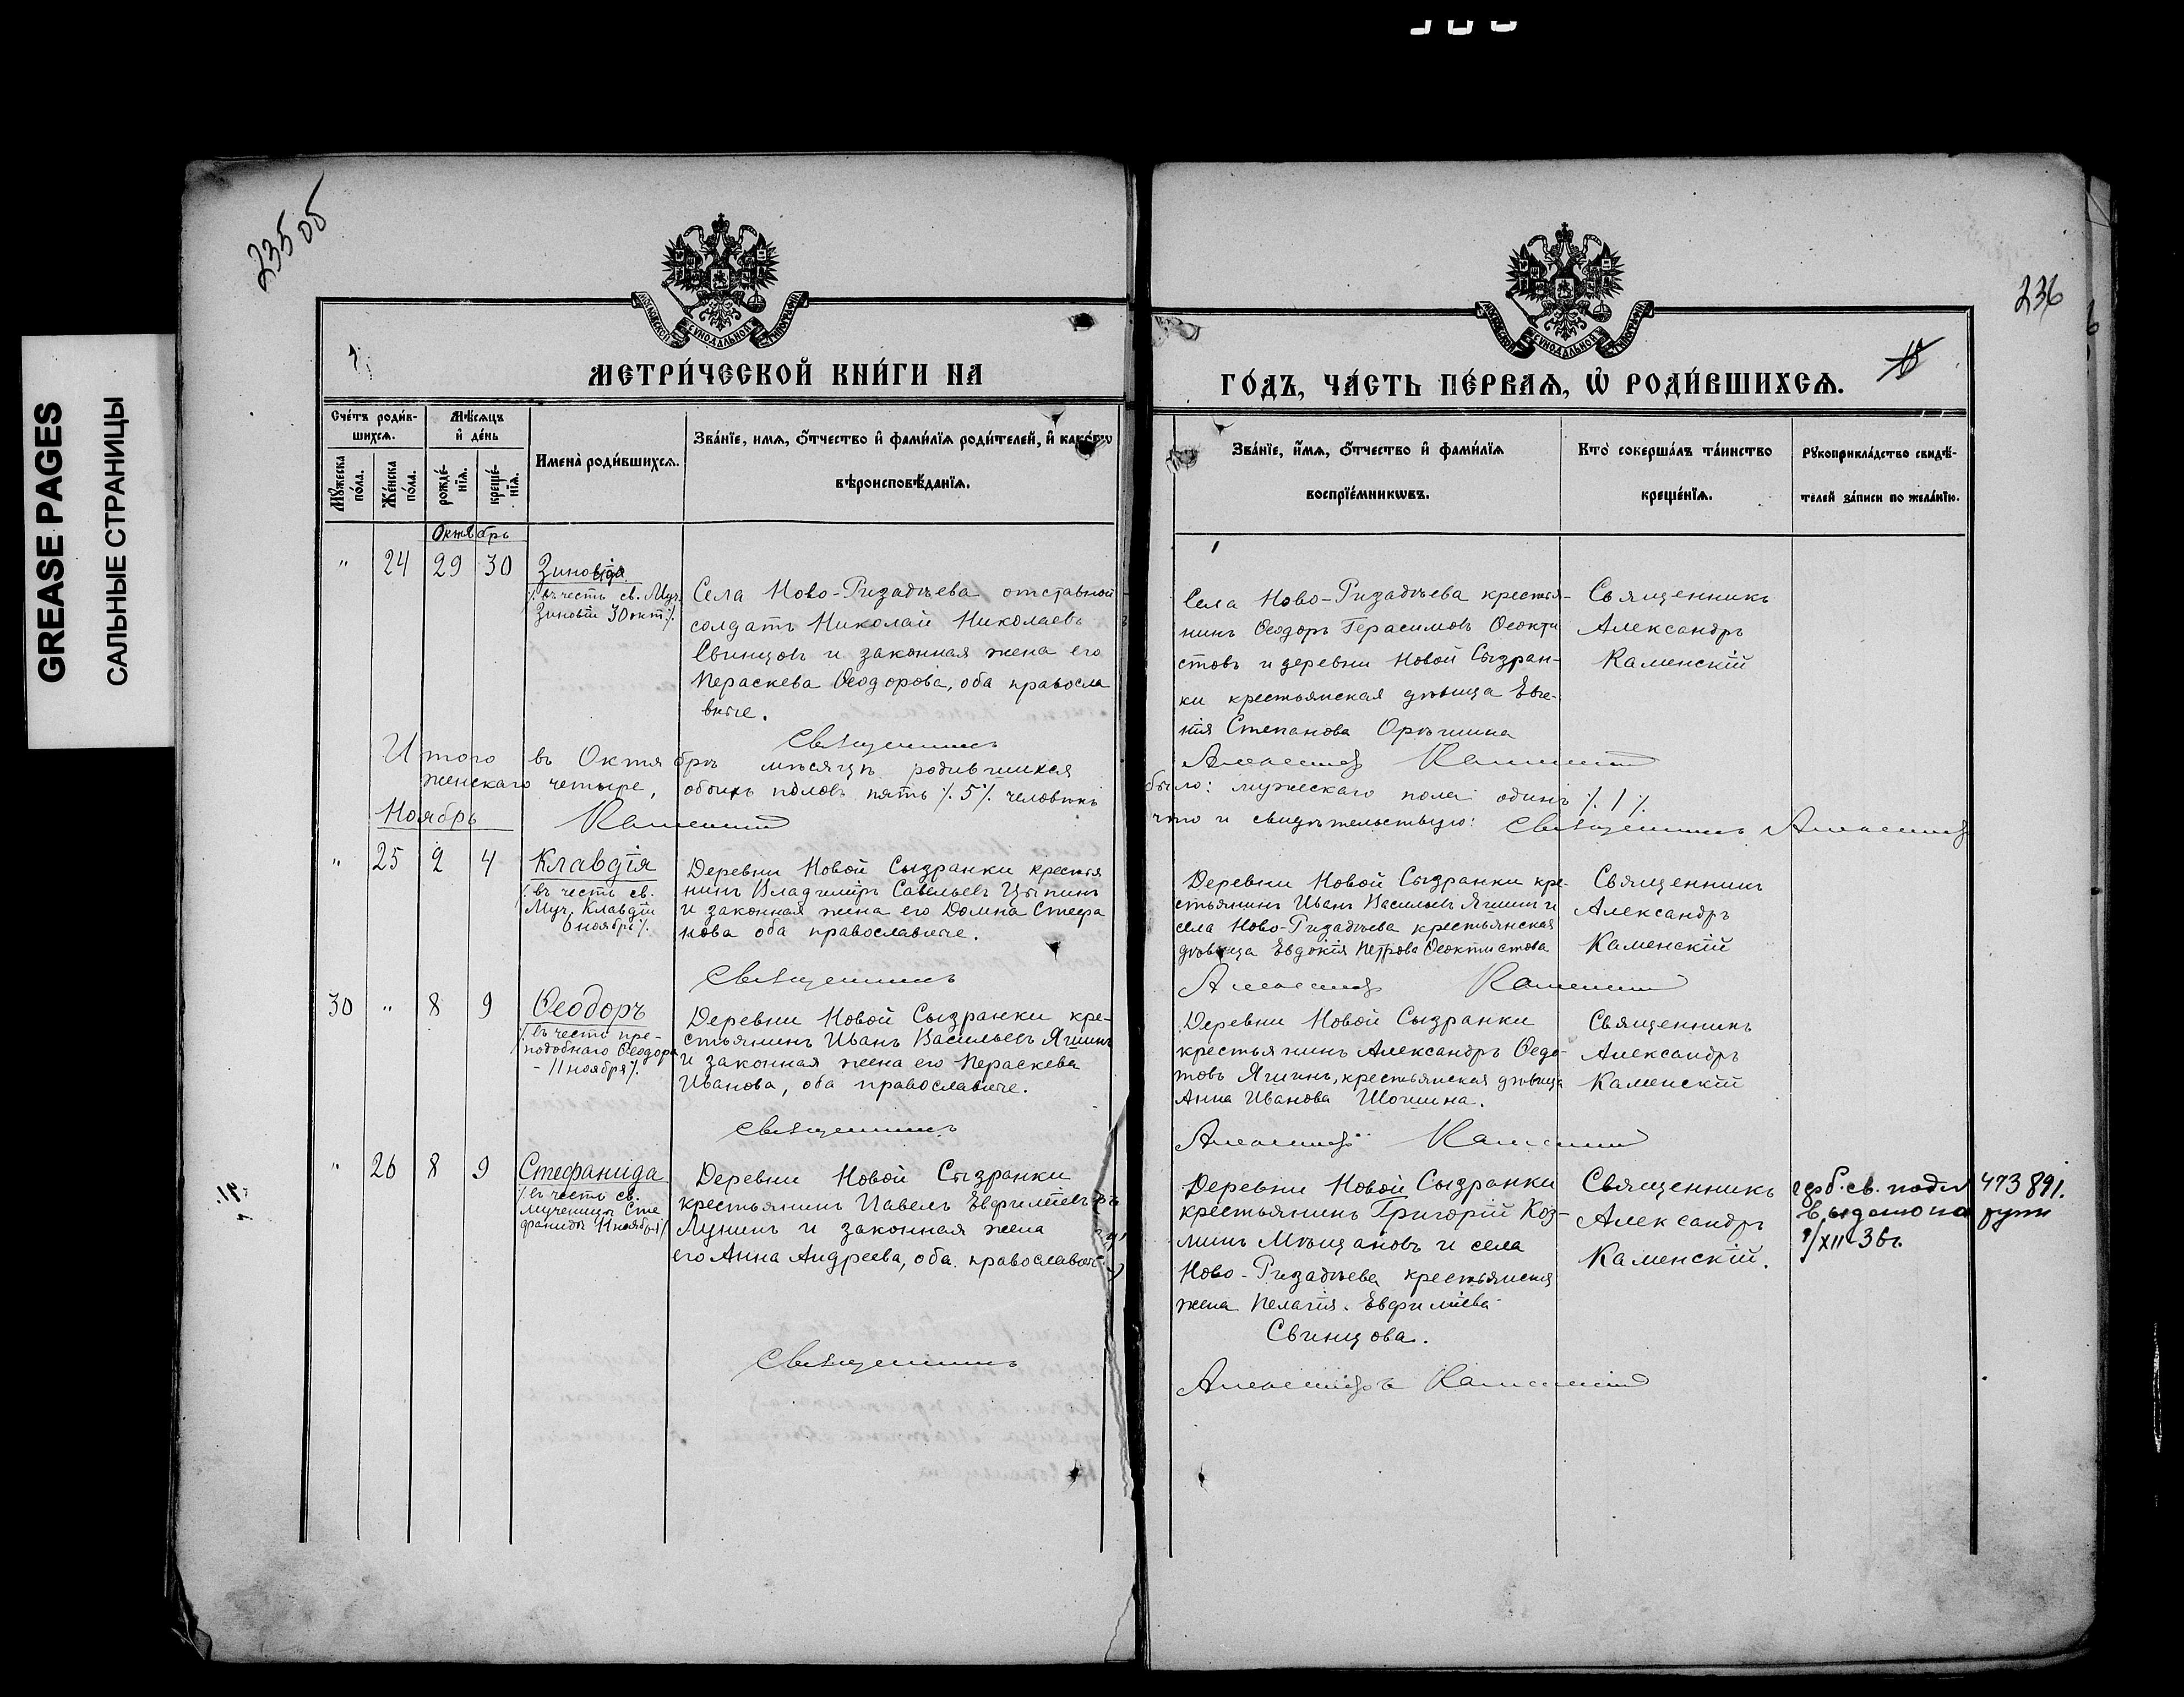 GREASE PAGES
САЛЬНЫЕ СТРАНИЦЫ
235 об
236
МОСКОВСКОЙ СѴНОДАЛЬНОЙ ТИПОГРАФІИ
МЕТРИ́ЧЕСКОЙ КНИ́ГИ НА
Сче́тъ роди́в-
шихсѧ.
Мѣ́сѧцъ
и҆ де́нь
Мꙋ́жеска
по́ла.
Же́нска
по́ла.
рожде́-
нїѧ.
креще́-
нїѧ.
И҆мена̀ роди́вшихсѧ.
Зва́нїе, и҆́мѧ, ѻ҆́тчество и҆ фами́лїѧ роди́телей, и҆ како́гѡ
вѣроисповѣ́данїѧ.
Октябрь
" 24 29 30
Зиновія
/въ честь св. Муч.
Зиновіи 30 окт./.
Села Ново-Ризадѣева отставной
солдатъ Николай Николаевъ
Свинцовъ и законная жена его
Пераскева Ѳеодорова, оба правосла
вные.
Священникъ
Итого въ Октябрѣ мѣсяцѣ родившихся
женскаго четыре, обоихъ половъ пять /.5/. человѣкъ
Ноябрь
Каменскій
" 25 2 4
Клавдія
/.въ честь св.
Муч. Клавдіи
6 ноября/.
Деревни Новой Сызранки крестья
нинъ Владиміръ Савельевъ Цыпинъ
и законная жена его Домна Стефа
нова оба православные.
Священникъ
30 " 8 9
Ѳеодоръ
/.въ честь пре-
подобнаго Ѳеодора
- 11 ноября/.
Деревни Новой Сызранки кре-
стьянинъ Иванъ Васильевъ Яшинъ
и законная жена его Пераскева
Иванова, оба православные.
Священникъ
" 26 8 9
Стефанида
/.въ честь св.
мученицы Сте
фаниды 11 ноября/
Деревни Новой Сызранки
крестьянинъ Павелъ Евфиміевъ
Лунинъ и законная жена
его Анна Андреева, оба православные.
Священникъ
МОСКОВСКОЙ СѴНОДАЛЬНОЙ ТИПОГРАФІИ
ГО́ДЪ, ЧА́СТЬ ПЕ́РВАѦ, Ѡ҆ РОДИ́ВШИХСѦ.
Зва́нїе, и҆́мѧ, ѻ҆́тчество и҆ фами́лїѧ
воспрїе́мникѡвъ.
Кто̀ соверша́лъ та́инство
креще́нїѧ.
Рꙋкоприкла́дство свидѣ́-
телей за́писи по жела́нїю.
Села Ново-Ризадѣева крестья-
нинъ Ѳеодоръ Герасимовъ Ѳеокти
стовъ и деревни Новой Сызран-
ки крестьянская дѣвица Евге-
нія Степанова Орѣшина
Священникъ
Александръ
Каменскій
Александръ Каменскій
было: мужескаго пола одинъ /.1/.
что и свидѣтельствую: Священникъ Александръ
Деревни Новой Сызранки кре-
стьянинъ Иванъ Васильевъ Яшинъ и
села Ново-Ризадѣева крестьянская
дѣвица Евдокія Петрова Ѳеоктистова
Священникъ
Александръ
Каменскій
Александръ Каменскій
Деревни Новой Сызранки
крестьянинъ Александръ Ѳедо-
товъ Яшинъ, крестьянская дѣвица
Анна Иванова Шошина.
Священникъ
Александръ
Каменскій
Александръ Каменскій
Деревни Новой Сызранки
крестьянинъ Григорій Коз-
минъ Мѣщановъ и села
Ново-Ризадѣева крестьянская
жена Пелагія Евфиміева
Свинцова.
Священникъ
Александръ
Каменскій.
473891.
выдано на руки
9/XII 36г.
Александръ Каменскій